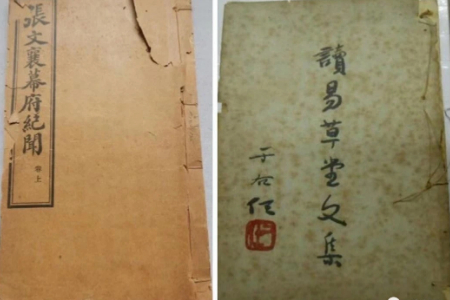 張文襄幕府紀聞
卷上
讀易草堂文集
于右任